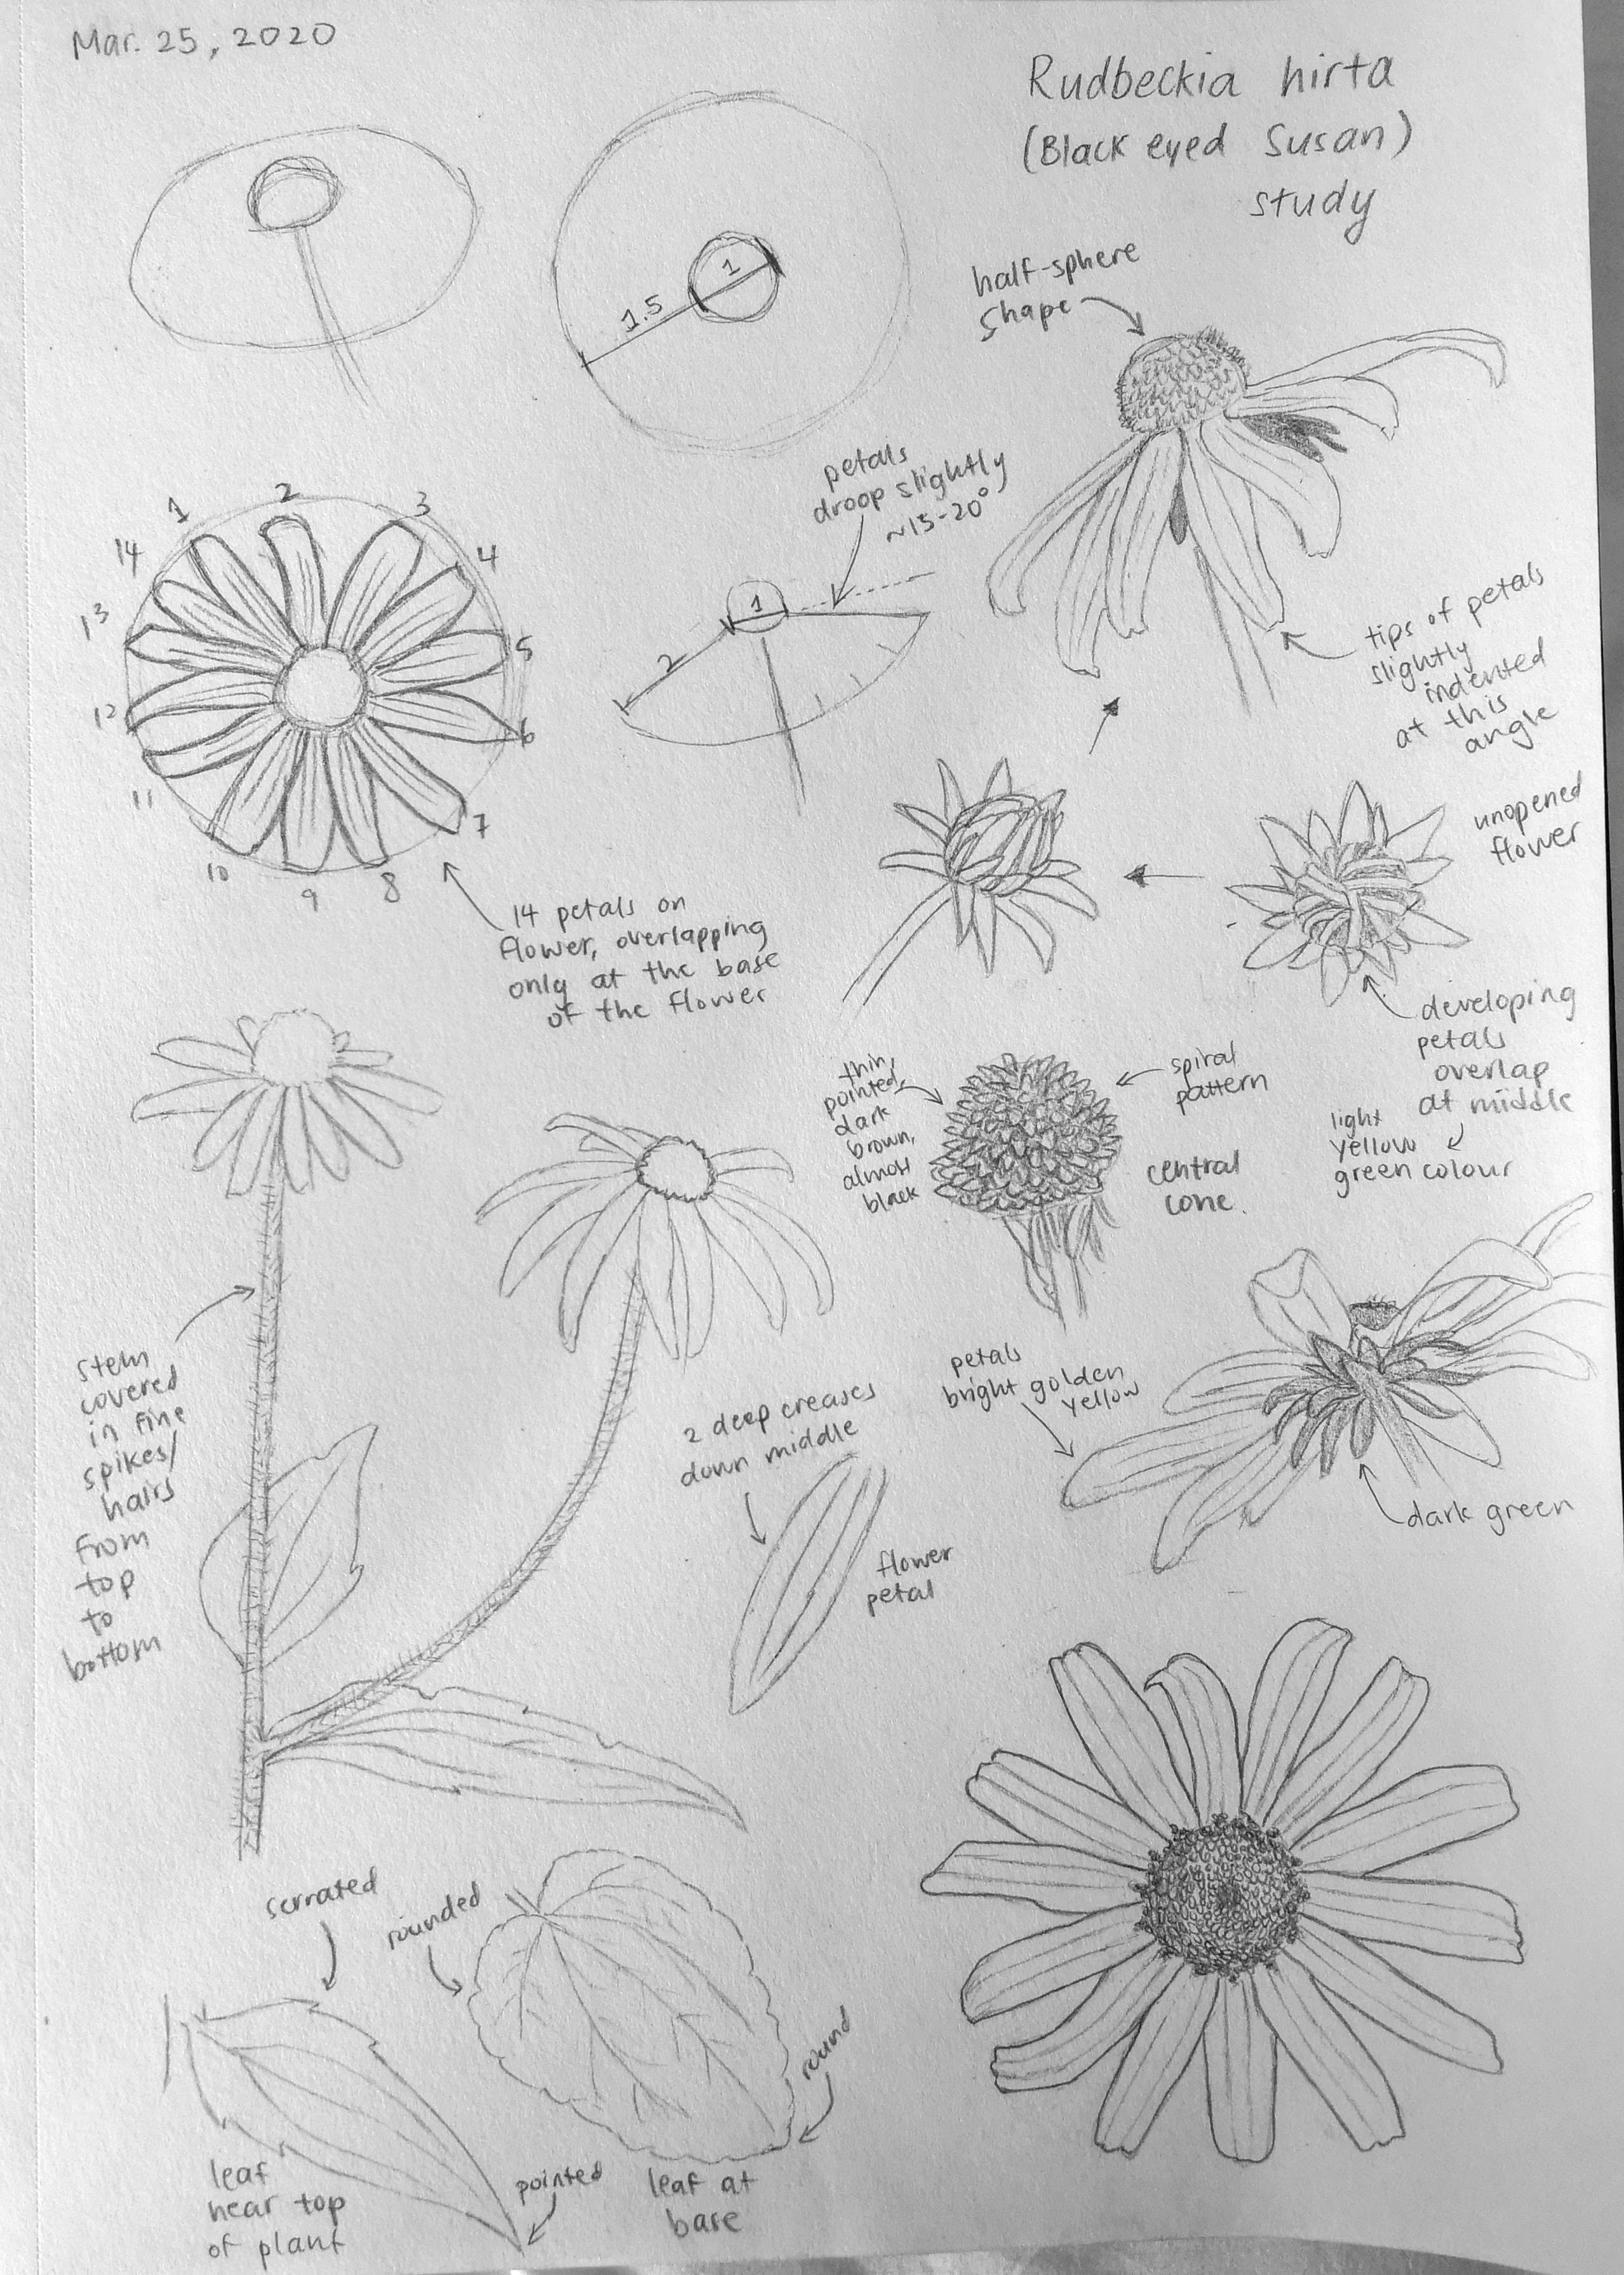 Mar. 25, 2020
Rudbeckia hirta
(Black eyed Susan)
study
1
1.5
half-sphere
shape
petals
droop slightly
~15-20°
1
2
tips of petals
slightly
indented
at this
angle
1
2
3
4
5
6
7
8
9
10
11
12
13
14
14 petals on
flower, overlapping
only at the base
of the flower
unopened
flower
developing
petals
overlap
at middle
light
yellow
green colour
thin,
pointed,
dark
brown,
almost
black
spiral
pattern
central
cone.
stem
covered
in fine
spikes/
hairs
from
top
to
bottom
2 deep creases
down middle
flower
petal
petals
bright golden
yellow
dark green
serrated
rounded
round
pointed
leaf
near top
of plant
leaf at
base